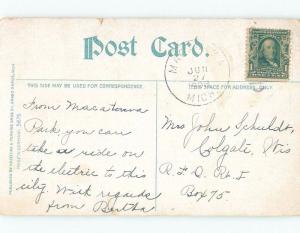 Post Card.
THIS SIDE MAY BE USED FOR CORRESPONDENCE.
THIS SIDE FOR ADDRESS.
JUN
27
MICH
From Macatawa
Park, you can
take a ride on
the electric to this
city. With regards
from Bertha
Mrs John Schuldt,
Colgate, Wis
R F D Rt 1
Box 75